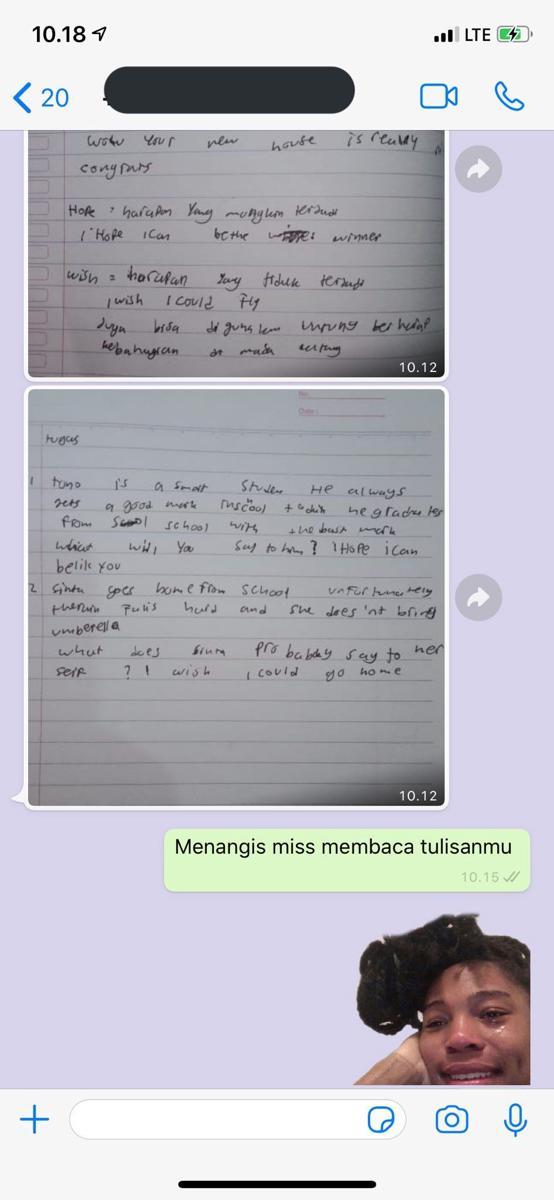 10.18
LTE
20
wow your new house is really
congrats
Hope : harapan yang mungkin terjadi
I Hope I can be the winner
wish = harapan yang tiduk terjadi
I wish I could Fly
Juga bisa di gunakan untung berharap
kebahagian di masa
10.12
No.
Date :
tugas
1 tono is a smart studen He always
gets a good mark inscool he
From school with the bast mark
what will you say to him ? I Hope i can
belik you
2 sinta goes home from school unfortunately
hard and she does'nt bring
umberella
what does sinta say to her
self ? I wish I could go home
10.12
Menangis miss membaca tulisanmu
10.15